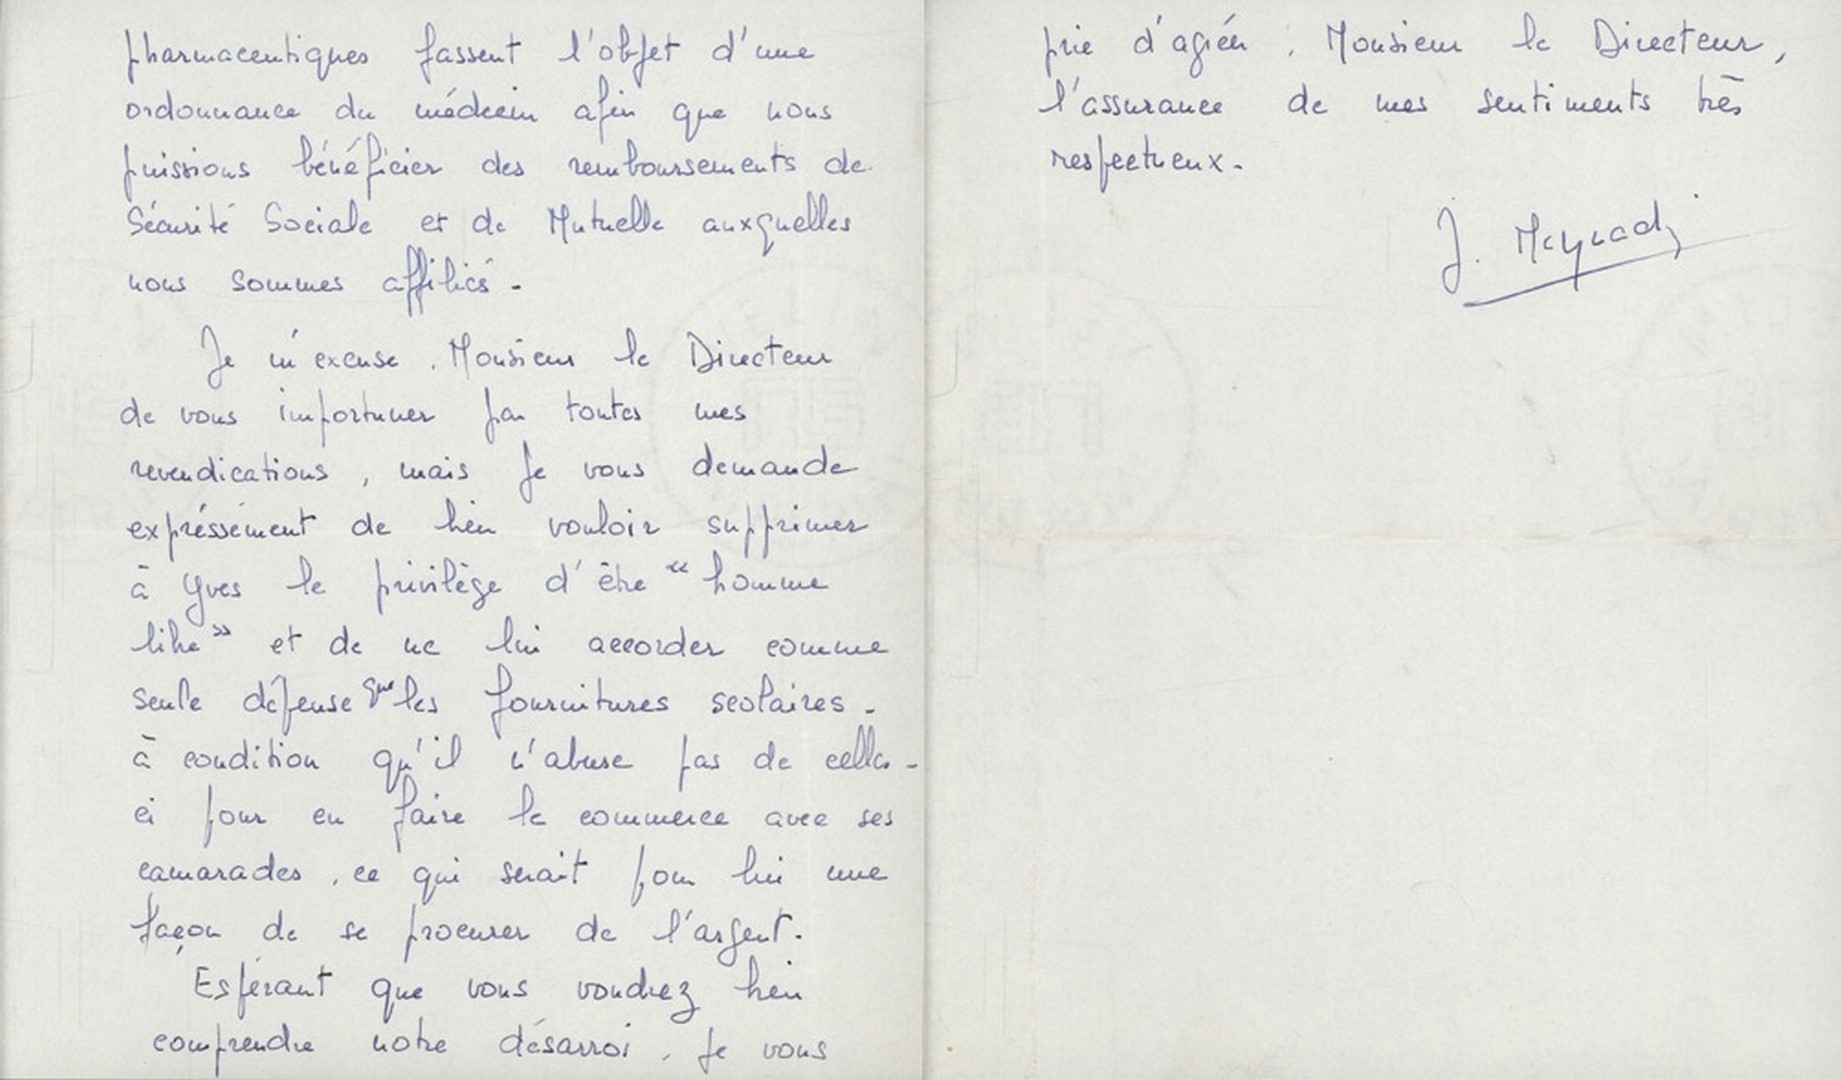 pharmaceutiques fassent l'objet d'une
ordonnance du médecin afin que nous
puissions bénéficier des remboursements de
Sécurité Sociale et de Mutuelle auxquelles
nous sommes affiliés -
Je m'excuse, Monsieur le Directeur
de vous importuner par toutes mes
revendications, mais je vous demande
expréssément de bien vouloir supprimer
à Yves le privilège d'être "homme
libre" et de ne lui accorder comme
seule défense que les fournitures scolaires -
à condition qu'il n'abuse pas de celles-
ci pour en faire le commerce avec ses
camarades, ce qui serait pour lui une
façon de se procurer de l'argent.
Espérant que vous voudrez bien
comprendre notre désarroi, je vous
prie d'agréer, Monsieur le Directeur,
l'assurance de mes sentiments très
respectueux -
J.